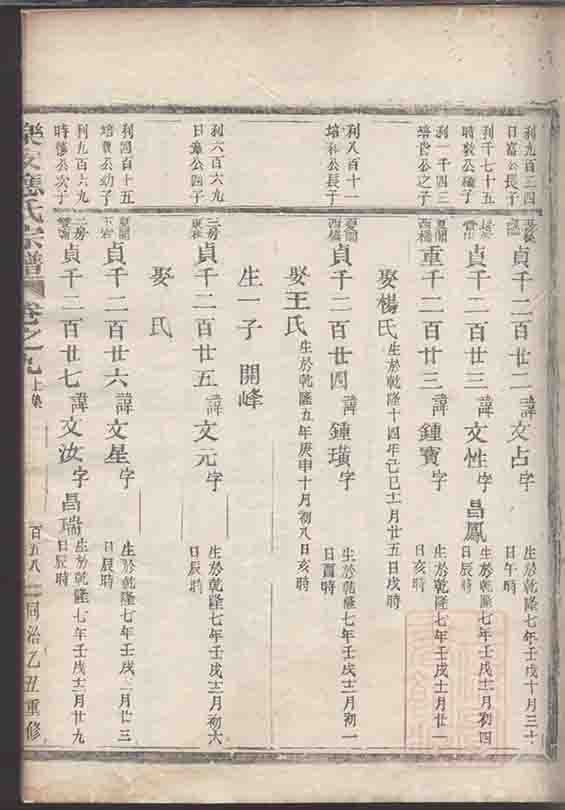 利九百三四
日富公長子
貞千二百廿二諱文占字
生於乾隆七年壬戌十月三十
日午時
利千七十五
貞千二百廿三諱文性字昌鳳
生於乾隆七年壬戌十一月初四
日辰時
利一千四三
夏閣
西樓
重千二百廿三諱鍾寶字
生於乾隆七年壬戌十一月廿一
日亥時
娶楊氏
生於乾隆十四年己巳十一月廿五日戌時
利八百十一
培朴公長子
夏閣
西樓
貞千二百廿四諱鍾璜字
生於乾隆七年壬戌十二月初一
日酉時
娶王氏
生於乾隆五年庚申十月初八日亥時
生一子 開峰
利六百六九
日章公四子
三房
貞千二百廿五諱文元字
生於乾隆七年壬戌十二月初六
日辰時
娶 氏
利四百十五
夏閣
貞千二百廿六諱文星字
生於乾隆七年壬戌十二月廿三
日辰時
利九百六九
時懋公次子
三房
貞千二百廿七諱文汝字昌瑞
生於乾隆七年壬戌十二月廿九
日辰時
樂安應氏宗譜 卷之九 上集 百五八 同治乙丑重修